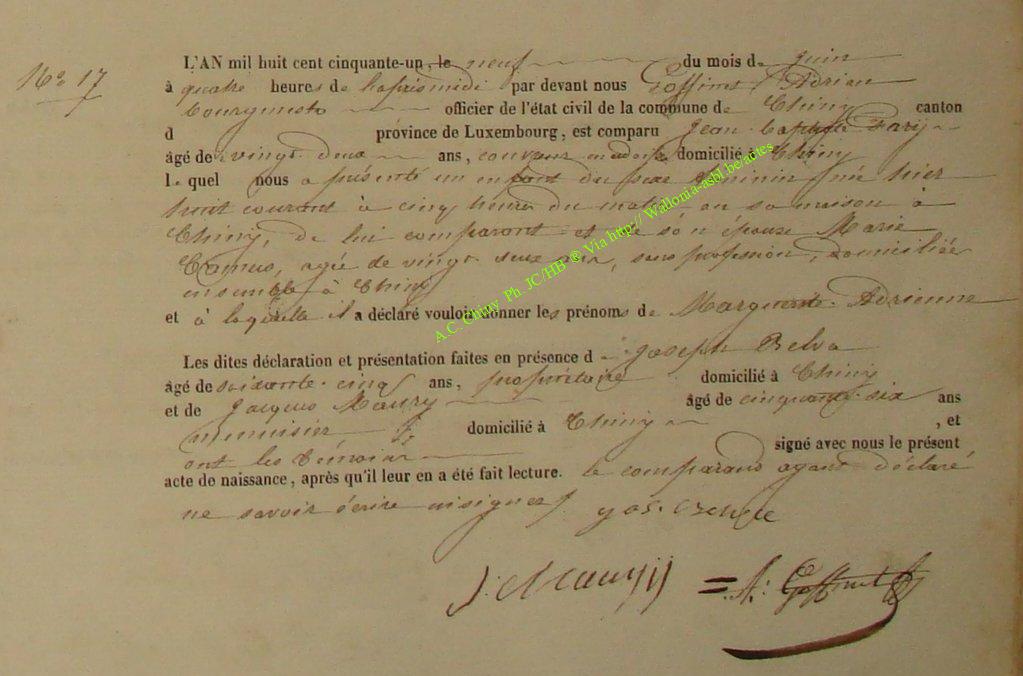 No 17
L'AN mil huit cent cinquante-un, le neuf du mois de juin
à quatre heures de l'aprèsmidi par devant nous Goffinet Adrien
Bourgmestre officier de l'état civil de la commune de Chiny canton
d province de Luxembourg, est comparu Jean Baptiste
âgé de vingt deux ans, domicilié à Chiny
lequel nous a présenté un enfant du sexe féminin né hier
huit courant à cinq heures du matin en sa maison à
Chiny, de lui comparant et de son épouse Marie
Camus, agée de vingt ans, sans profession, domiciliée
ensemble à Chiny
et à laquelle il a déclaré vouloir donner les prénoms de Marguerite Adrienne
Les dites déclaration et présentation faites en présence de Joseph
âgé de soixante-cinq ans, propriétaire domicilié à Chiny
et de Jacques Maury âgé de cinquante-six ans
menuisier domicilié à Chiny , et
ont les témoins signé avec nous le présent
acte de naissance, après qu'il leur en a été fait lecture. le comparand ayant déclaré
ne savoir écrire ni signer
A. Goffinet
A.C. Chiny Ph. JC/HB ® Via http:// Wallonia-asbl.be/actes